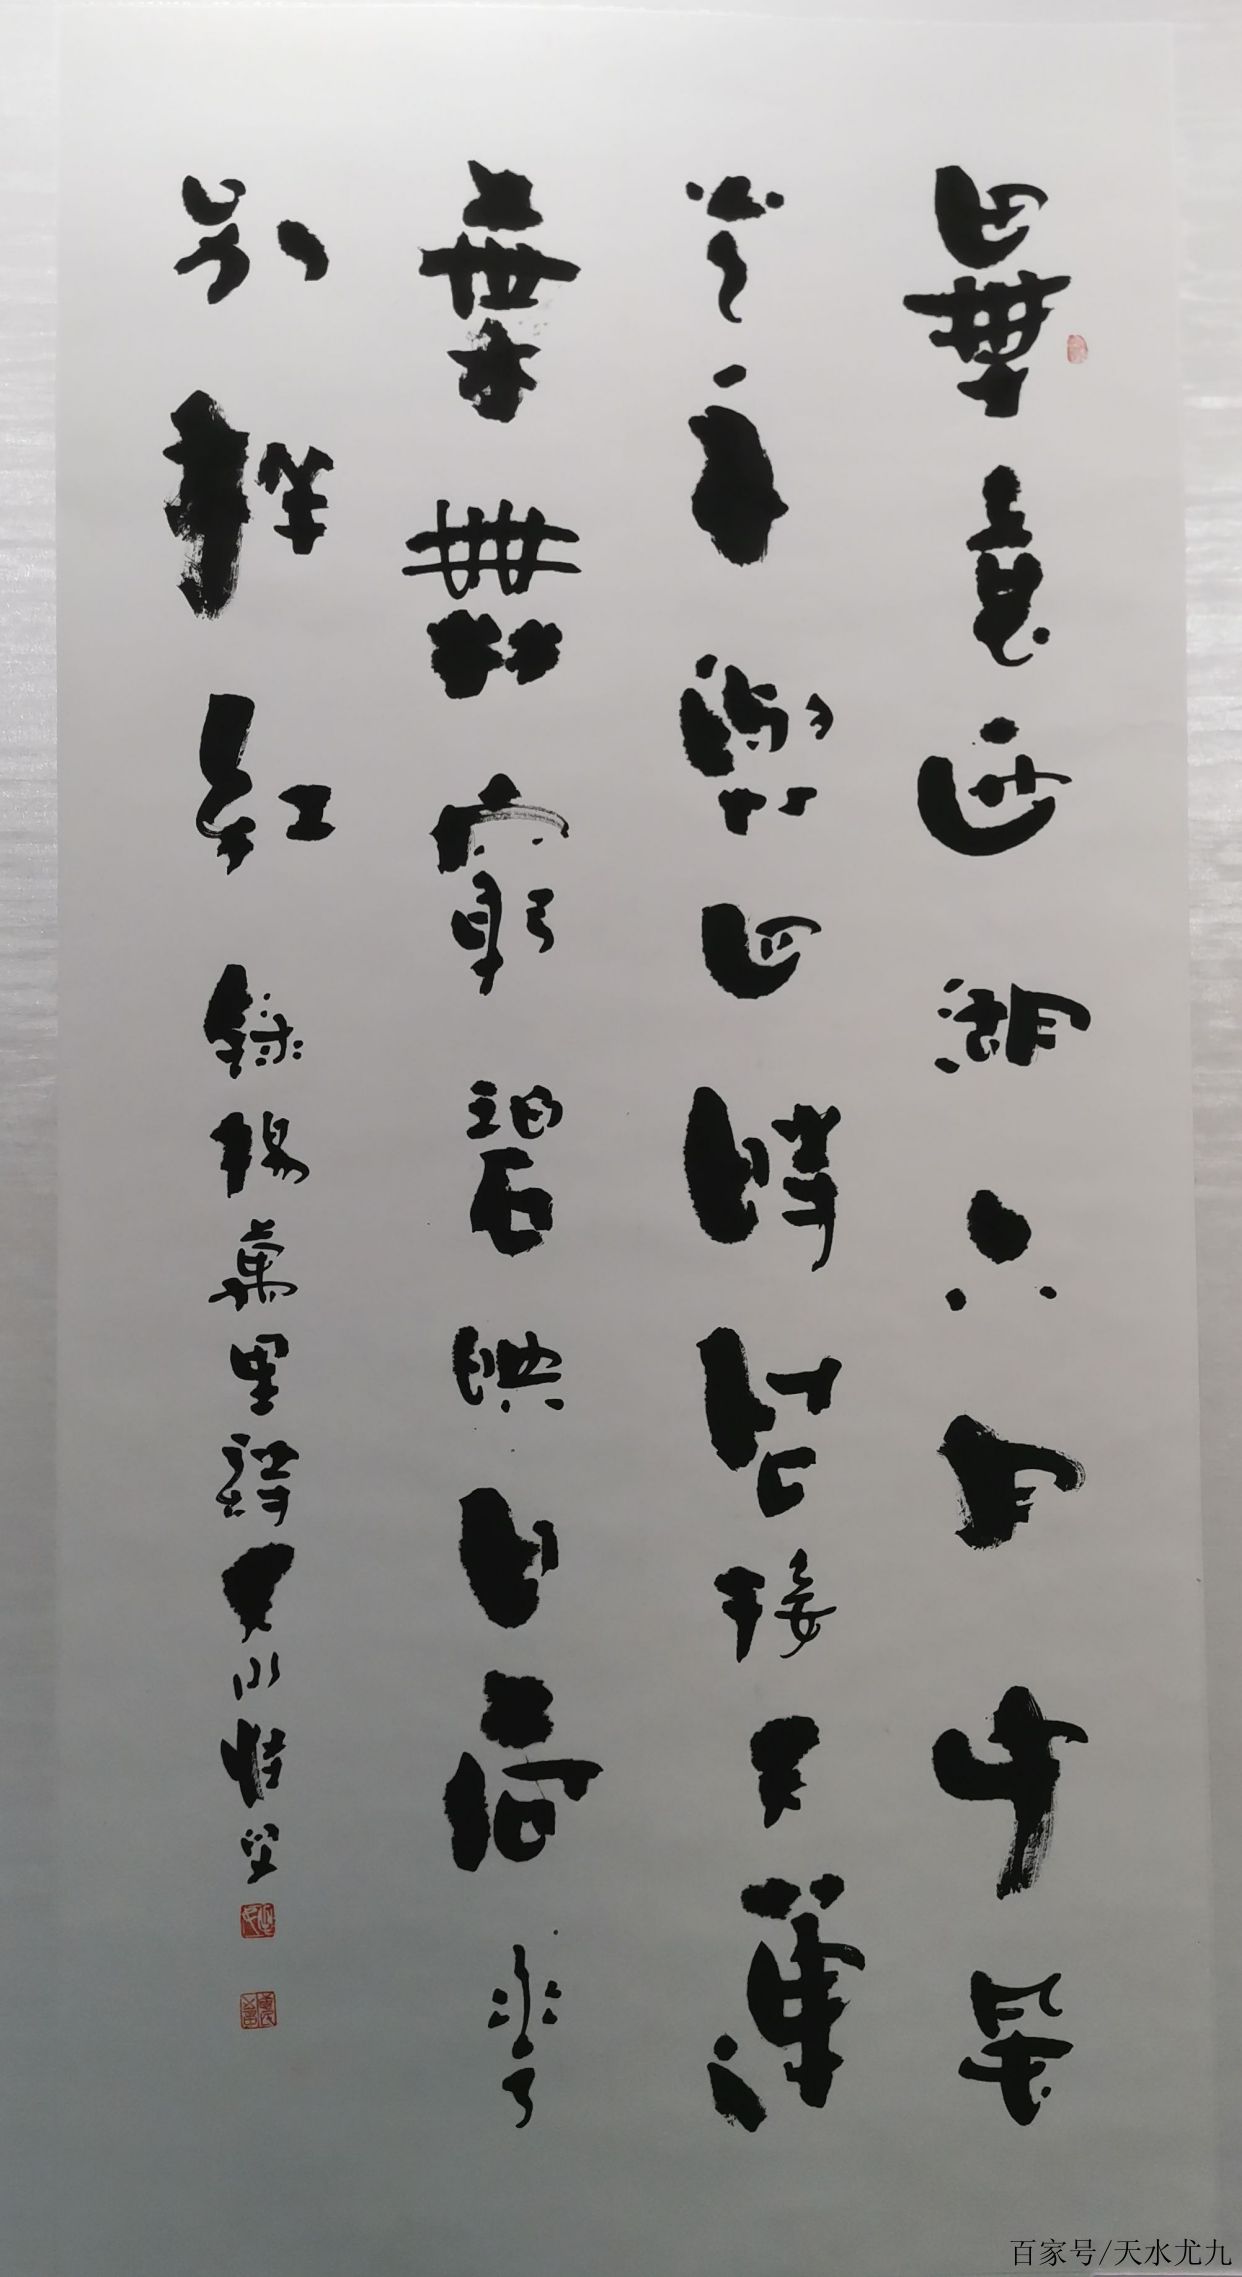 畢竟西湖六月中風
光不與四時同接天蓮
葉無窮碧映日荷花
別樣紅 錄楊萬里詩天水
百家号/天水尤九